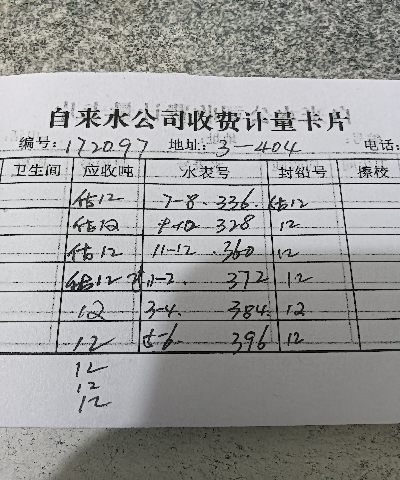 自来水公司收费计量卡片
编号: 172097 地址: 3-404 电话:
卫生间 应收吨 水表号 封铅号
估12 7-8. 336. 估12
估12 9-10 328 12
估12 11-12 .360 12
估12 1-2. 372 12
12 3-4. 384. 12
12 5-6 396 12
12
12
12